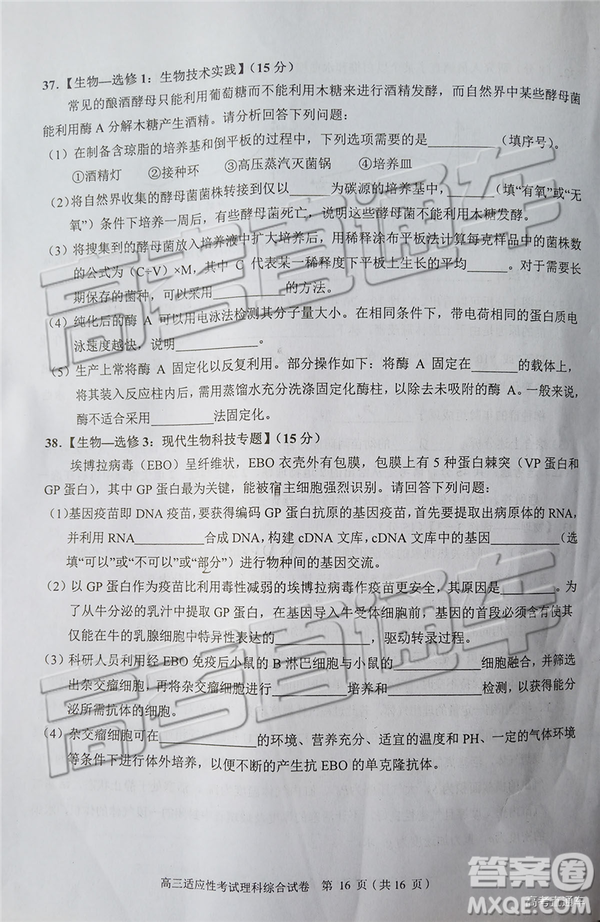 37.【生物—选修1：生物技术实践】（15分）
常见的酿酒酵母只能利用葡萄糖而不能利用木糖来进行酒精发酵，而自然界中某些酵母菌
能利用酶A分解木糖产生酒精。请分析回答下列问题：
（1）在制备含琼脂的培养基和倒平板的过程中，下列需要使用的是________（填序号）。
①酒精灯 ②接种环 ③高压蒸汽灭菌锅 ④培养皿
（2）将自然界收集的酵母菌菌株转接到仅以________为碳源的培养基中，________（填“有氧”或“无
氧”）条件下培养一段时间后，有些酵母菌死亡，说明这些酵母菌不能利用木糖发酵。
（3）将搜集到的酵母菌放入培养液中扩大培养后，用稀释涂布平板法计算每克样品中的菌株数
的公式为（C÷V）×M，其中 C 代表某一稀释度下平板上生长的平均________。对于需要长
期保存的菌种，可以采用________的方法。
（4）纯化后的酶 A 可以用电泳法检测其分子量大小。在相同条件下，带电荷相同的蛋白质电
泳速度越快，说明________。
（5）生产上常将酶 A 固定化以反复利用。部分操作如下：将酶 A 固定在________的载体上，
将其装入反应柱内后，需用蒸馏水充分洗涤固定化酶柱，以除去未吸附的酶 A。固定化
酶不适合采用________法固定化。
38.【生物—选修3：现代生物科技专题】（15分）
埃博拉病毒（EBO）呈纤维状，EBO 衣壳外有包膜，包膜上有 5 种蛋白棘突（VP 蛋白和
GP 蛋白），其中 GP 蛋白最为关键，能被宿主细胞强烈识别。请回答下列问题：
（1）基因疫苗即 DNA 疫苗，要获得编码 GP 蛋白抗原的基因疫苗，首先要提取出病原体的 RNA，
并利用RNA________合成 DNA，构建 cDNA 文库，cDNA 文库中的基因________（选
填“可以”或“不可以”或“部分”）进行物种间的基因交流。
（2）以 GP 蛋白作为疫苗比利用毒性减弱的埃博拉病毒作疫苗更安全，其原因是________。为
了从牛分泌的乳汁中提取 GP 蛋白，在基因导入牛受体细胞前，基因的首端必须含有使其
仅能在牛的乳腺细胞中特异性表达的________，驱动转录过程。
（3）科研人员利用经 EBO 免疫后小鼠的 B 淋巴细胞与小鼠的________细胞融合，并筛选
出杂交瘤细胞，再将杂交瘤细胞进行________培养和________检测，以获得能分泌
所需抗体的细胞。
（4）杂交瘤细胞可在________的环境、营养充分、适宜的温度和 PH、一定的气体环境
等条件下进行体外培养，以便不断的产生抗 EBO 的单克隆抗体。
高三适应性考试理科综合试卷 第 16 页（共 16 页）
高考直通车
高考直通车
答案圈
MXQE.COM
高考直通车